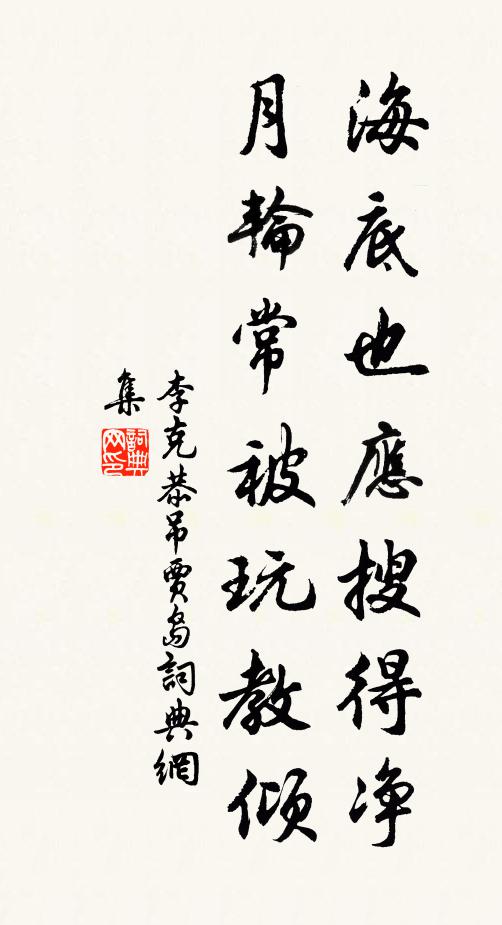 海底也應搜得净
月輪常被玩教傾
李克恭吊賈島詞典網
集
詞典網印